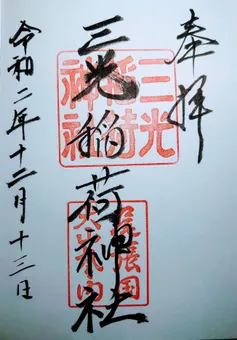 奉拝
三光稲荷神社
令和二年十二月十三日
三光
稲荷
神社
尾張国
犬山内